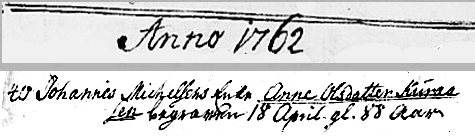 Anno 1762
40 Johannes Michelsens Enke Anne Olsdatter Kuraa
sen begraven 18 April. gl. 88 Aar